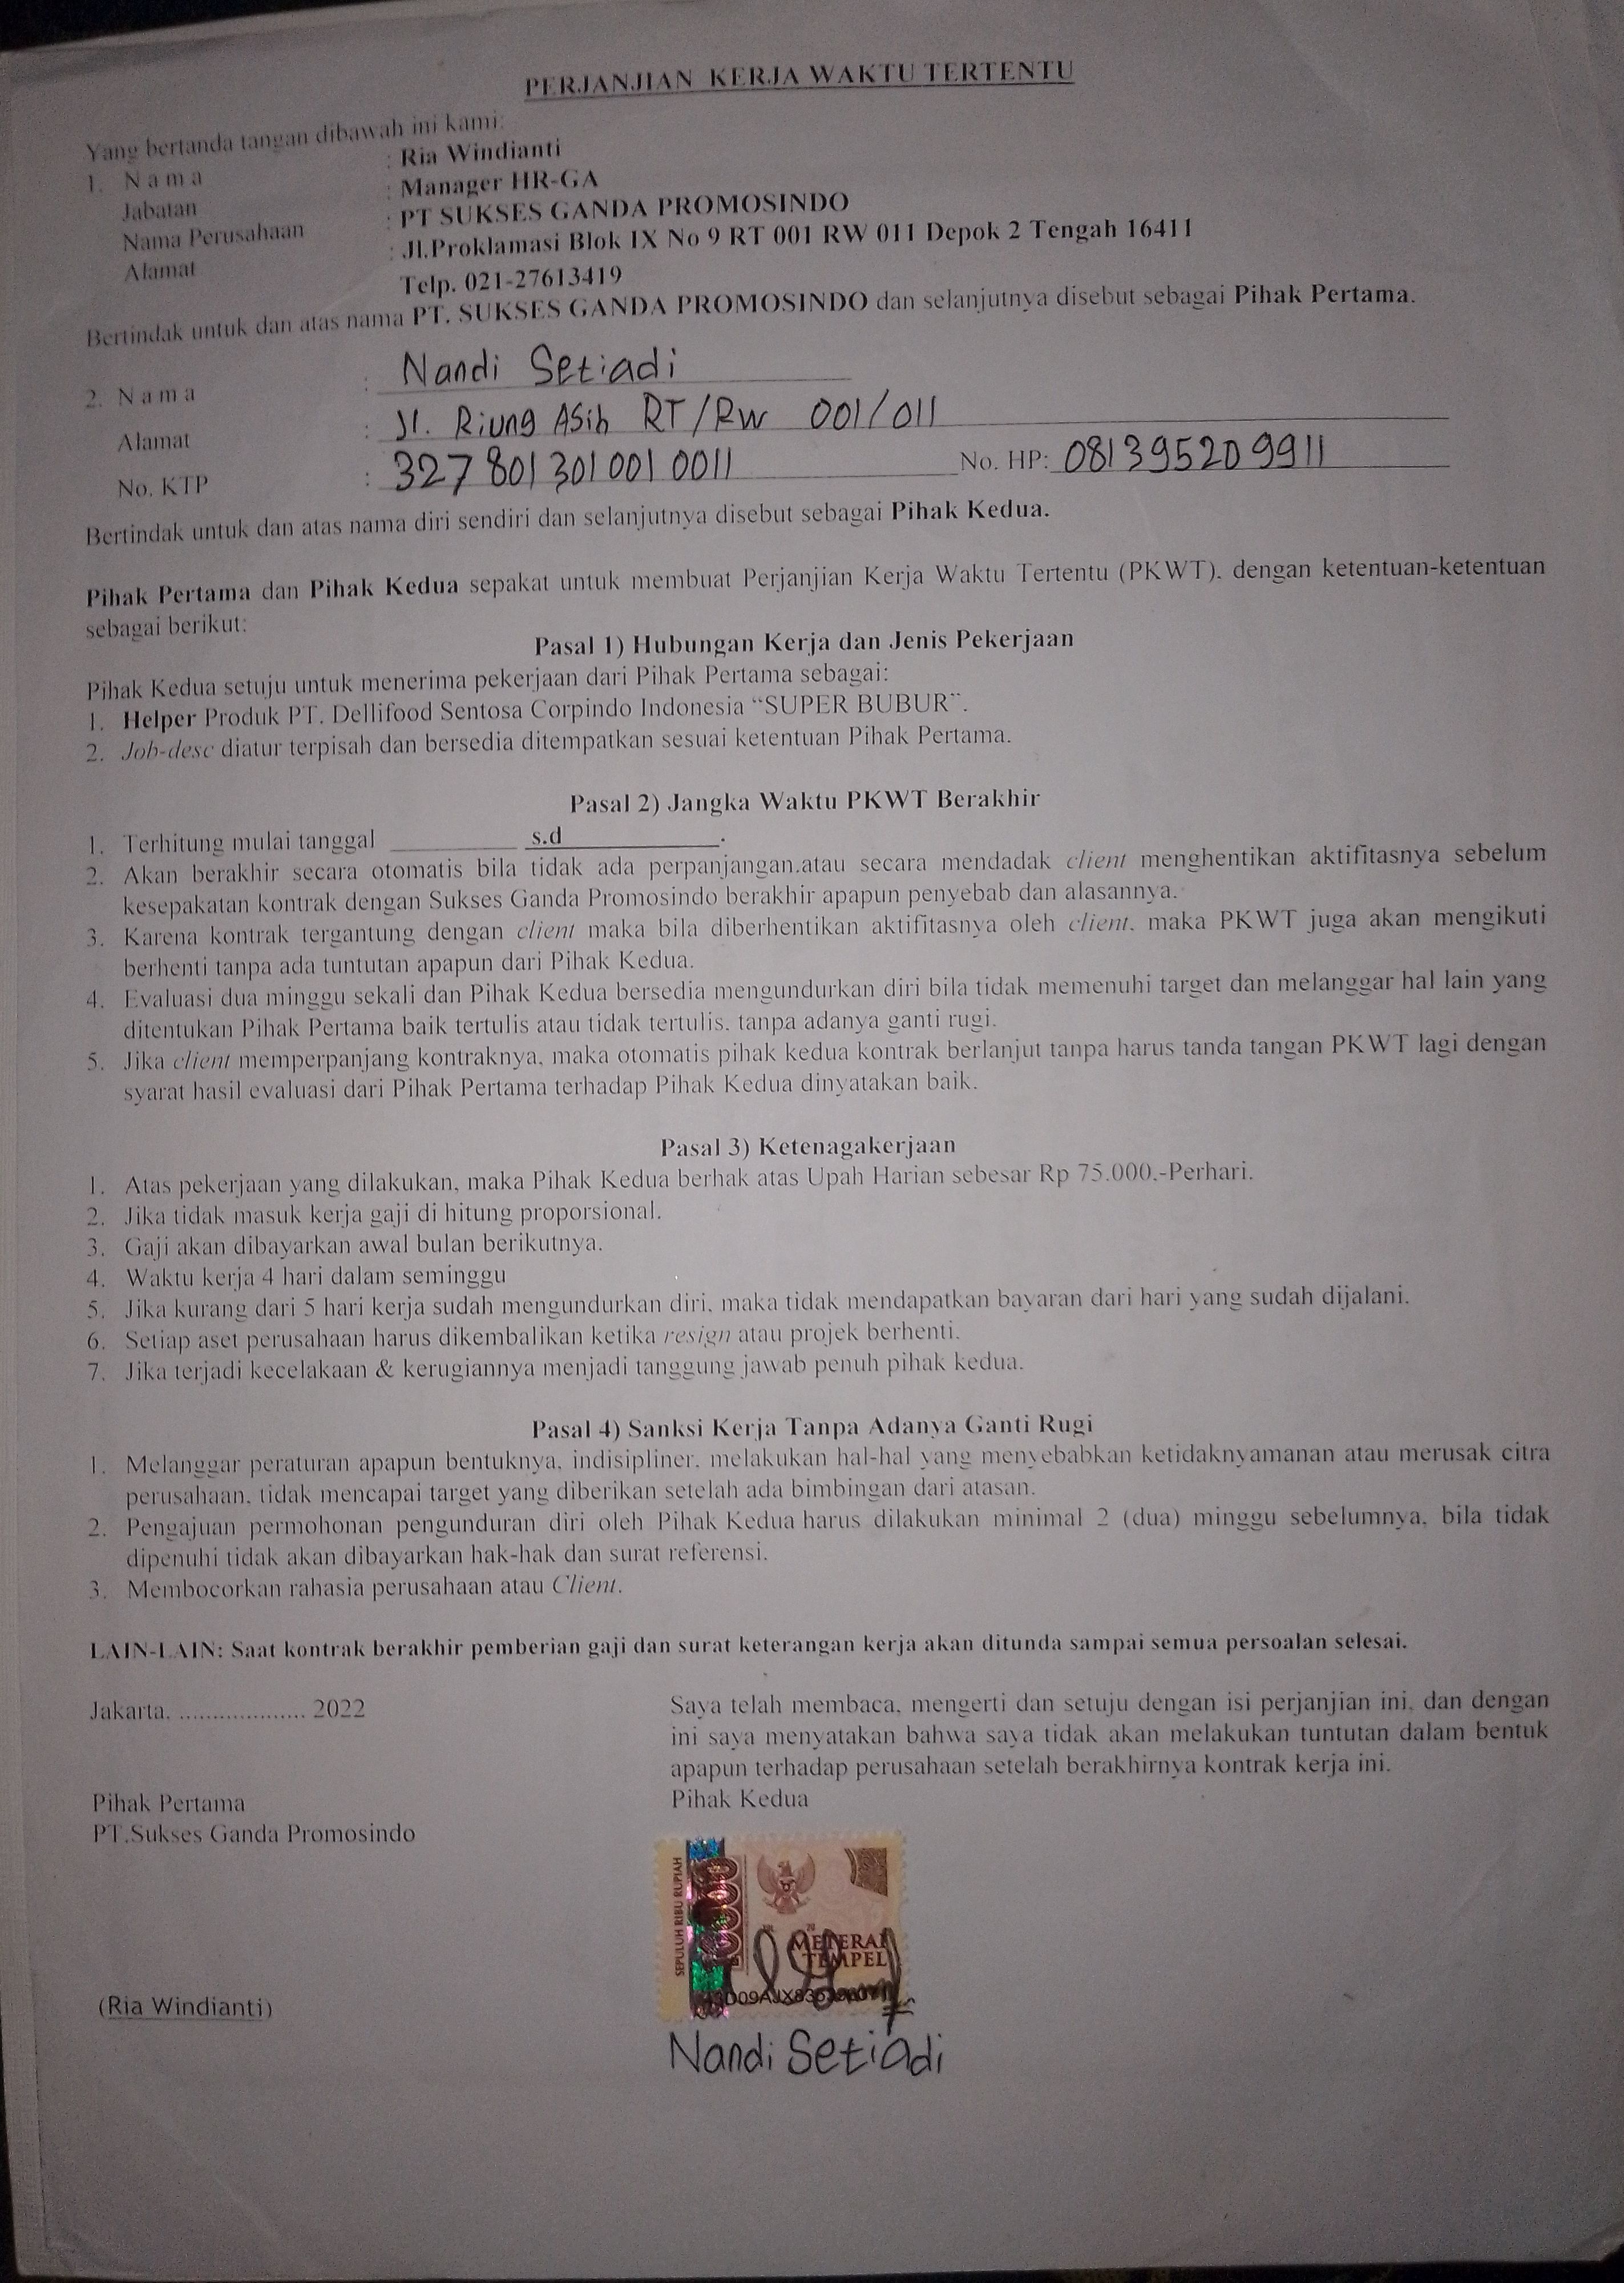 PERJANJIAN KERJA WAKTU TERTENTU
Yang bertanda tangan dibawah ini kami:
1. N a m a : Ria Windianti
Jabatan : Manager HR-GA
Nama Perusahaan : PT SUKSES GANDA PROMOSINDO
Alamat : Jl.Proklamasi Blok IX No 9 RT 001 RW 011 Depok 2 Tengah 16411
Telp. 021-27613419
Bertindak untuk dan atas nama PT. SUKSES GANDA PROMOSINDO dan selanjutnya disebut sebagai Pihak Pertama.
2. N a m a : Nandi Setiadi
Alamat : Jl. Riung Asih RT/RW 001/011
No. KTP : 3278013010010011 No. HP: 081395209911
Bertindak untuk dan atas nama diri sendiri dan selanjutnya disebut sebagai Pihak Kedua.
Pihak Pertama dan Pihak Kedua sepakat untuk membuat Perjanjian Kerja Waktu Tertentu (PKWT), dengan ketentuan-ketentuan
sebagai berikut:
Pasal 1) Hubungan Kerja dan Jenis Pekerjaan
Pihak Kedua setuju untuk menerima pekerjaan dari Pihak Pertama sebagai:
1. Helper Produk PT. Dellifood Sentosa Corpindo Indonesia “SUPER BUBUR”.
2. Job-desc diatur terpisah dan bersedia ditempatkan sesuai ketentuan Pihak Pertama.
Pasal 2) Jangka Waktu PKWT Berakhir
1. Terhitung mulai tanggal __________ s.d ____________.
2. Akan berakhir secara otomatis bila tidak ada perpanjangan.atau secara mendadak client menghentikan aktifitasnya sebelum
kesepakatan kontrak dengan Sukses Ganda Promosindo berakhir apapun penyebab dan alasannya.
3. Karena kontrak tergantung dengan client maka bila diberhentikan aktifitasnya oleh client, maka PKWT juga akan mengikuti
berhenti tanpa ada tuntutan apapun dari Pihak Kedua.
4. Evaluasi dua minggu sekali dan Pihak Kedua bersedia mengundurkan diri bila tidak memenuhi target dan melanggar hal lain yang
ditentukan Pihak Pertama baik tertulis atau tidak tertulis, tanpa adanya ganti rugi.
5. Jika client memperpanjang kontraknya, maka otomatis pihak kedua kontrak berlanjut tanpa harus tanda tangan PKWT lagi dengan
syarat hasil evaluasi dari Pihak Pertama terhadap Pihak Kedua dinyatakan baik.
Pasal 3) Ketenagakerjaan
1. Atas pekerjaan yang dilakukan, maka Pihak Kedua berhak atas Upah Harian sebesar Rp 75.000.-Perhari.
2. Jika tidak masuk kerja gaji di hitung proporsional.
3. Gaji akan dibayarkan awal bulan berikutnya.
4. Waktu kerja 4 hari dalam seminggu
5. Jika kurang dari 5 hari kerja sudah mengundurkan diri, maka tidak mendapatkan bayaran dari hari yang sudah dijalani.
6. Setiap aset perusahaan harus dikembalikan ketika resign atau projek berhenti.
7. Jika terjadi kecelakaan & kerugiannya menjadi tanggung jawab penuh pihak kedua.
Pasal 4) Sanksi Kerja Tanpa Adanya Ganti Rugi
1. Melanggar peraturan apapun bentuknya, indisipliner, melakukan hal-hal yang menyebabkan ketidaknyamanan atau merusak citra
perusahaan, tidak mencapai target yang diberikan setelah ada bimbingan dari atasan.
2. Pengajuan permohonan pengunduran diri oleh Pihak Kedua harus dilakukan minimal 2 (dua) minggu sebelumnya, bila tidak
dipenuhi tidak akan dibayarkan hak-hak dan surat referensi.
3. Membocorkan rahasia perusahaan atau Client.
LAIN-LAIN: Saat kontrak berakhir pemberian gaji dan surat keterangan kerja akan ditunda sampai semua persoalan selesai.
Jakarta, ................... 2022
Saya telah membaca, mengerti dan setuju dengan isi perjanjian ini, dan dengan
ini saya menyatakan bahwa saya tidak akan melakukan tuntutan dalam bentuk
apapun terhadap perusahaan setelah berakhirnya kontrak kerja ini.
Pihak Pertama
PT.Sukses Ganda Promosindo
Pihak Kedua
SEPULUH RIBU RUPIAH
10000
METERAI
TEMPEL
(Ria Windianti)
Nandi Setiadi